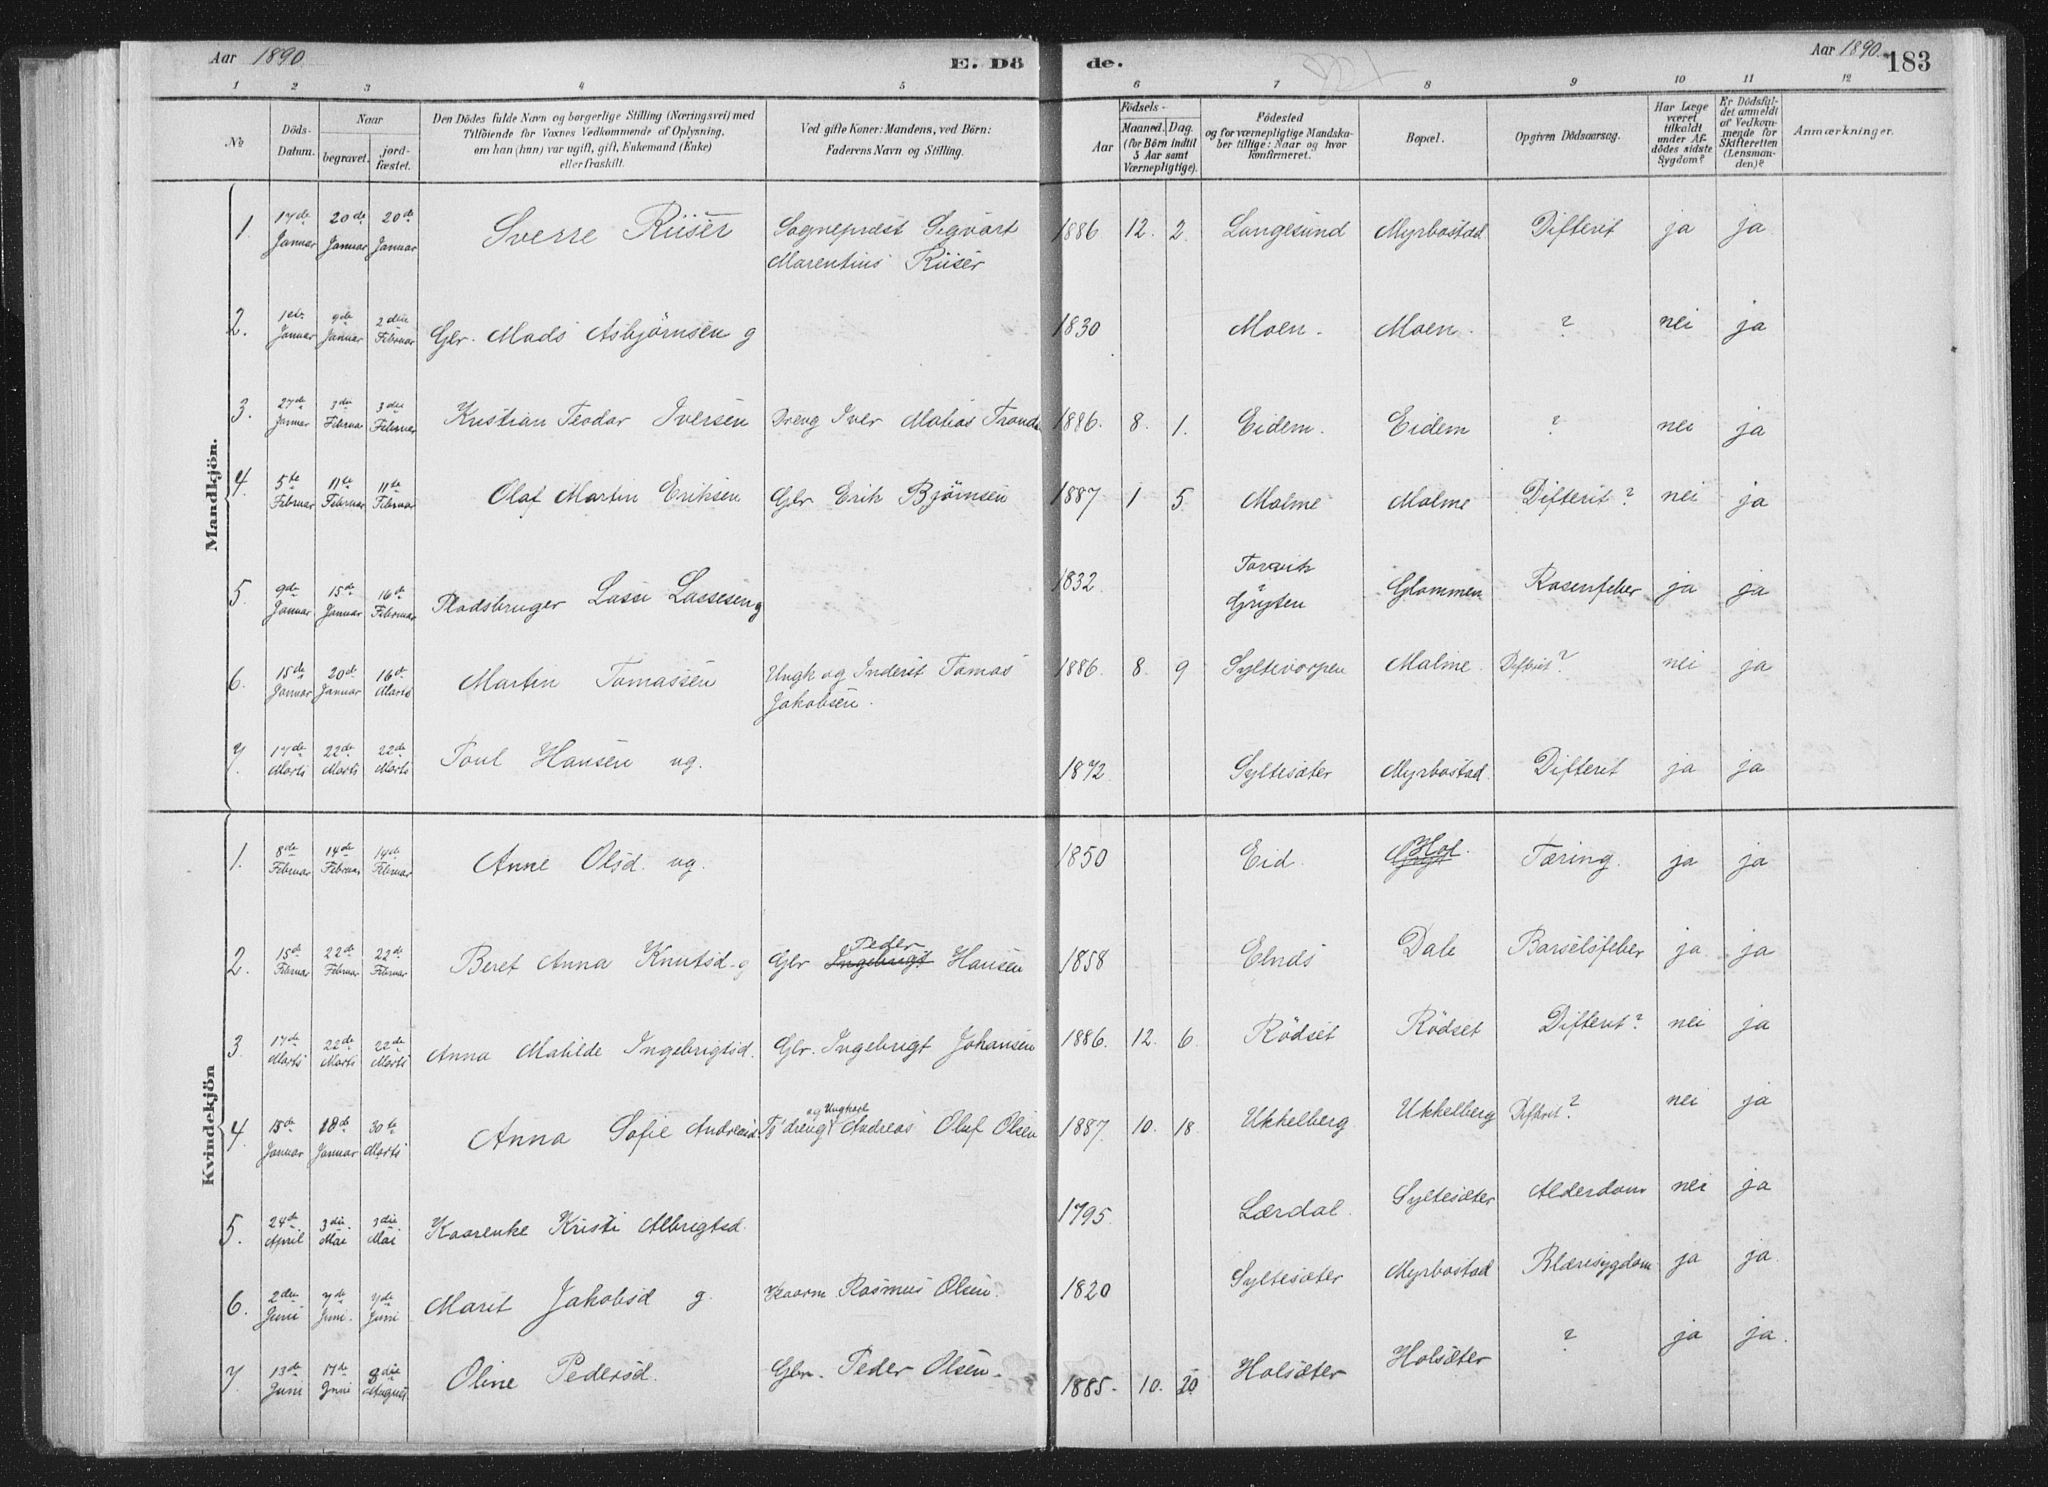 Aar 1890 E. Dö de. Aar 1890. 183
1 2 3 4 5 6 7 8 9 10 11 12
No
Döds-Datum.
Naar
begravet.
jordfæstet.
Den Dödes fulde Navn og borgerlige Stilling (Næringsvei) med
Tilföiende for Voxnes Vedkommende af Oplysning,
om han (hun) var ugift, gift, Enkemand (Enke)
eller fraskilt.
Ved gifte Koner: Mandens, ved Börn:
Faderens Navn og Stilling.
Födsels-
Aar
Maaned. Dag.
(for Börn indtil
5 Aar samt
Værnepligtige).
Födested
og for værnepligtige Mandska-
ber tillige: Naar og hvor
konfirmeret.
Bopæl.
Opgiven Dödsaarsag.
Har Læge
været
tilkaldt
under Af-
dödes sidste
Sygdom?
Er Dödsfal-
det anmeldt
af Vedkom-
mende for
Skifteretten
(Lensman-
den)?
Anmærkninger.
Mandkjön.
1. 17de Januar 20de Januar 20de Januar Sverre Riiser Sogneprest Sigvart Marentius Riiser 1886 12. 2. Langesund Myrbostad Difterit ja ja.
2. 1ste Januar 9de Januar 2den Februar Gbr. Mads Asbjørnsen g 1830 Moen. Moen. ? nei ja
3. 27de Januar 3die Februar 3die Februar Kristian Teodor Iversen Dreng Iver Matias Tronds 1886. 8. 1. Eidem. Eidem ? nei ja
4. 5te Februar 11te Februar 11te Februar Olaf Martin Eriksen Gbr Erik Bjørnsen 1887 1 5 Malme Malme Difterit? nei ja
5. 9de Januar 15de Januar 16de Februar Pladsbruger Lasse Lassesen g 1832 Tarvik ? Gryten Glammen Rosenfeber ja ja
6. 15de Januar 20de Januar 16de Marts Martin Tomassen Ungk og Inderst Tomas Jakobsen. 1886. 8. 9 Syltevorpen Malme Difterit? nei ja
7. 17de Marts 22de Marts 22de Marts Poul Hansen ug. 1872 Syltesæter Myrbostad. Difterit ja ja
Kvindekjön
1. 8de Februar 14de Februar 14de Februar Anne Olsd. ug. 1850 Eid. Hol. Tæring. ja ja
2. 15de Februar 22de Februar 22de Februar Beret Anna Knutsd. g Gbr Ingebrigt Peder Hansen 1858 Elnes Dale Barselsfeber ja ja
3. 17de Marts 22de Marts 22de Marts Anna Matilde Ingebrigtsd. Gbr. Ingebrigt Johansen 1886. 12. 6. Rödset Rödset Difterit? nei ja
4. 15de Januar 18de Januar 30te Marts Anna Sofie Andreasd. Tj.dreng og Ungkarl Andreas Oluf Olsen 1887. 10. 18. Ukkelberg Ukkelberg Difterit? nei ja
5. 24de April 3die Mai 3die Mai Kaarenke Kristi Albrigtsd. 1795. Lærdal. Syltesæter Alderdom nei ja
6. 2den Juni 7de Juni. 7de Juni Marit Jakobsd g. Kaarm Rasmus Olsen. 1820 Syltesæter Myrbostad Blæresygdom ja ja.
7. 13de Juni 17de Juni 3die August Oline Pedersd. Gbr. Peder Olsen. 1885. 10. 20 Holsæter Holsæter ? ja ja.